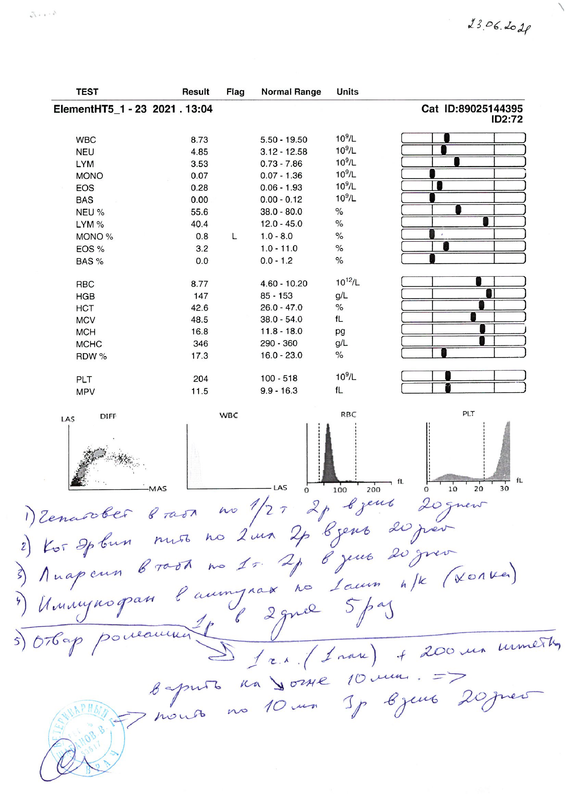 23.06.2021
TEST Result Flag Normal Range Units
ElementHT5_1 - 23 2021 . 13:04 Cat ID:89025144395
ID2:72
WBC 8.73 5.50 - 19.50 10⁹/L
NEU 4.85 3.12 - 12.58 10⁹/L
LYM 3.53 0.73 - 7.86 10⁹/L
MONO 0.07 0.07 - 1.36 10⁹/L
EOS 0.28 0.06 - 1.93 10⁹/L
BAS 0.00 0.00 - 0.12 10⁹/L
NEU % 55.6 38.0 - 80.0 %
LYM % 40.4 12.0 - 45.0 %
MONO % 0.8 L 1.0 - 8.0 %
EOS % 3.2 1.0 - 11.0 %
BAS % 0.0 0.0 - 1.2 %
RBC 8.77 4.60 - 10.20 10¹²/L
HGB 147 85 - 153 g/L
HCT 42.6 26.0 - 47.0 %
MCV 48.5 38.0 - 54.0 fL
MCH 16.8 11.8 - 18.0 pg
MCHC 346 290 - 360 g/L
RDW % 17.3 16.0 - 23.0 %
PLT 204 100 - 518 10⁹/L
MPV 11.5 9.9 - 16.3 fL
LAS DIFF WBC RBC PLT
MAS LAS 0 100 200 fL 0 10 20 30 fL
1) Гепатовет в табл по 1/2 т 2р в день 20 дней
2) Кот Эрвин пить по 2мл 2р в день 20 дней
3) Лиарсин в табл по 1т. 2р в день 20 дней
4) Иммунофан в ампулах по 1амп п/к (холка)
1р в 2 дня 5 раз
5) Отвар ромашки
1 ч.л. (1 пак) + 200 мл
варить на огне 10 мин. =>
=> поить по 10 мл 3р в день 20 дней
ВЕТЕРИНАРНЫЙ
ВРАЧ